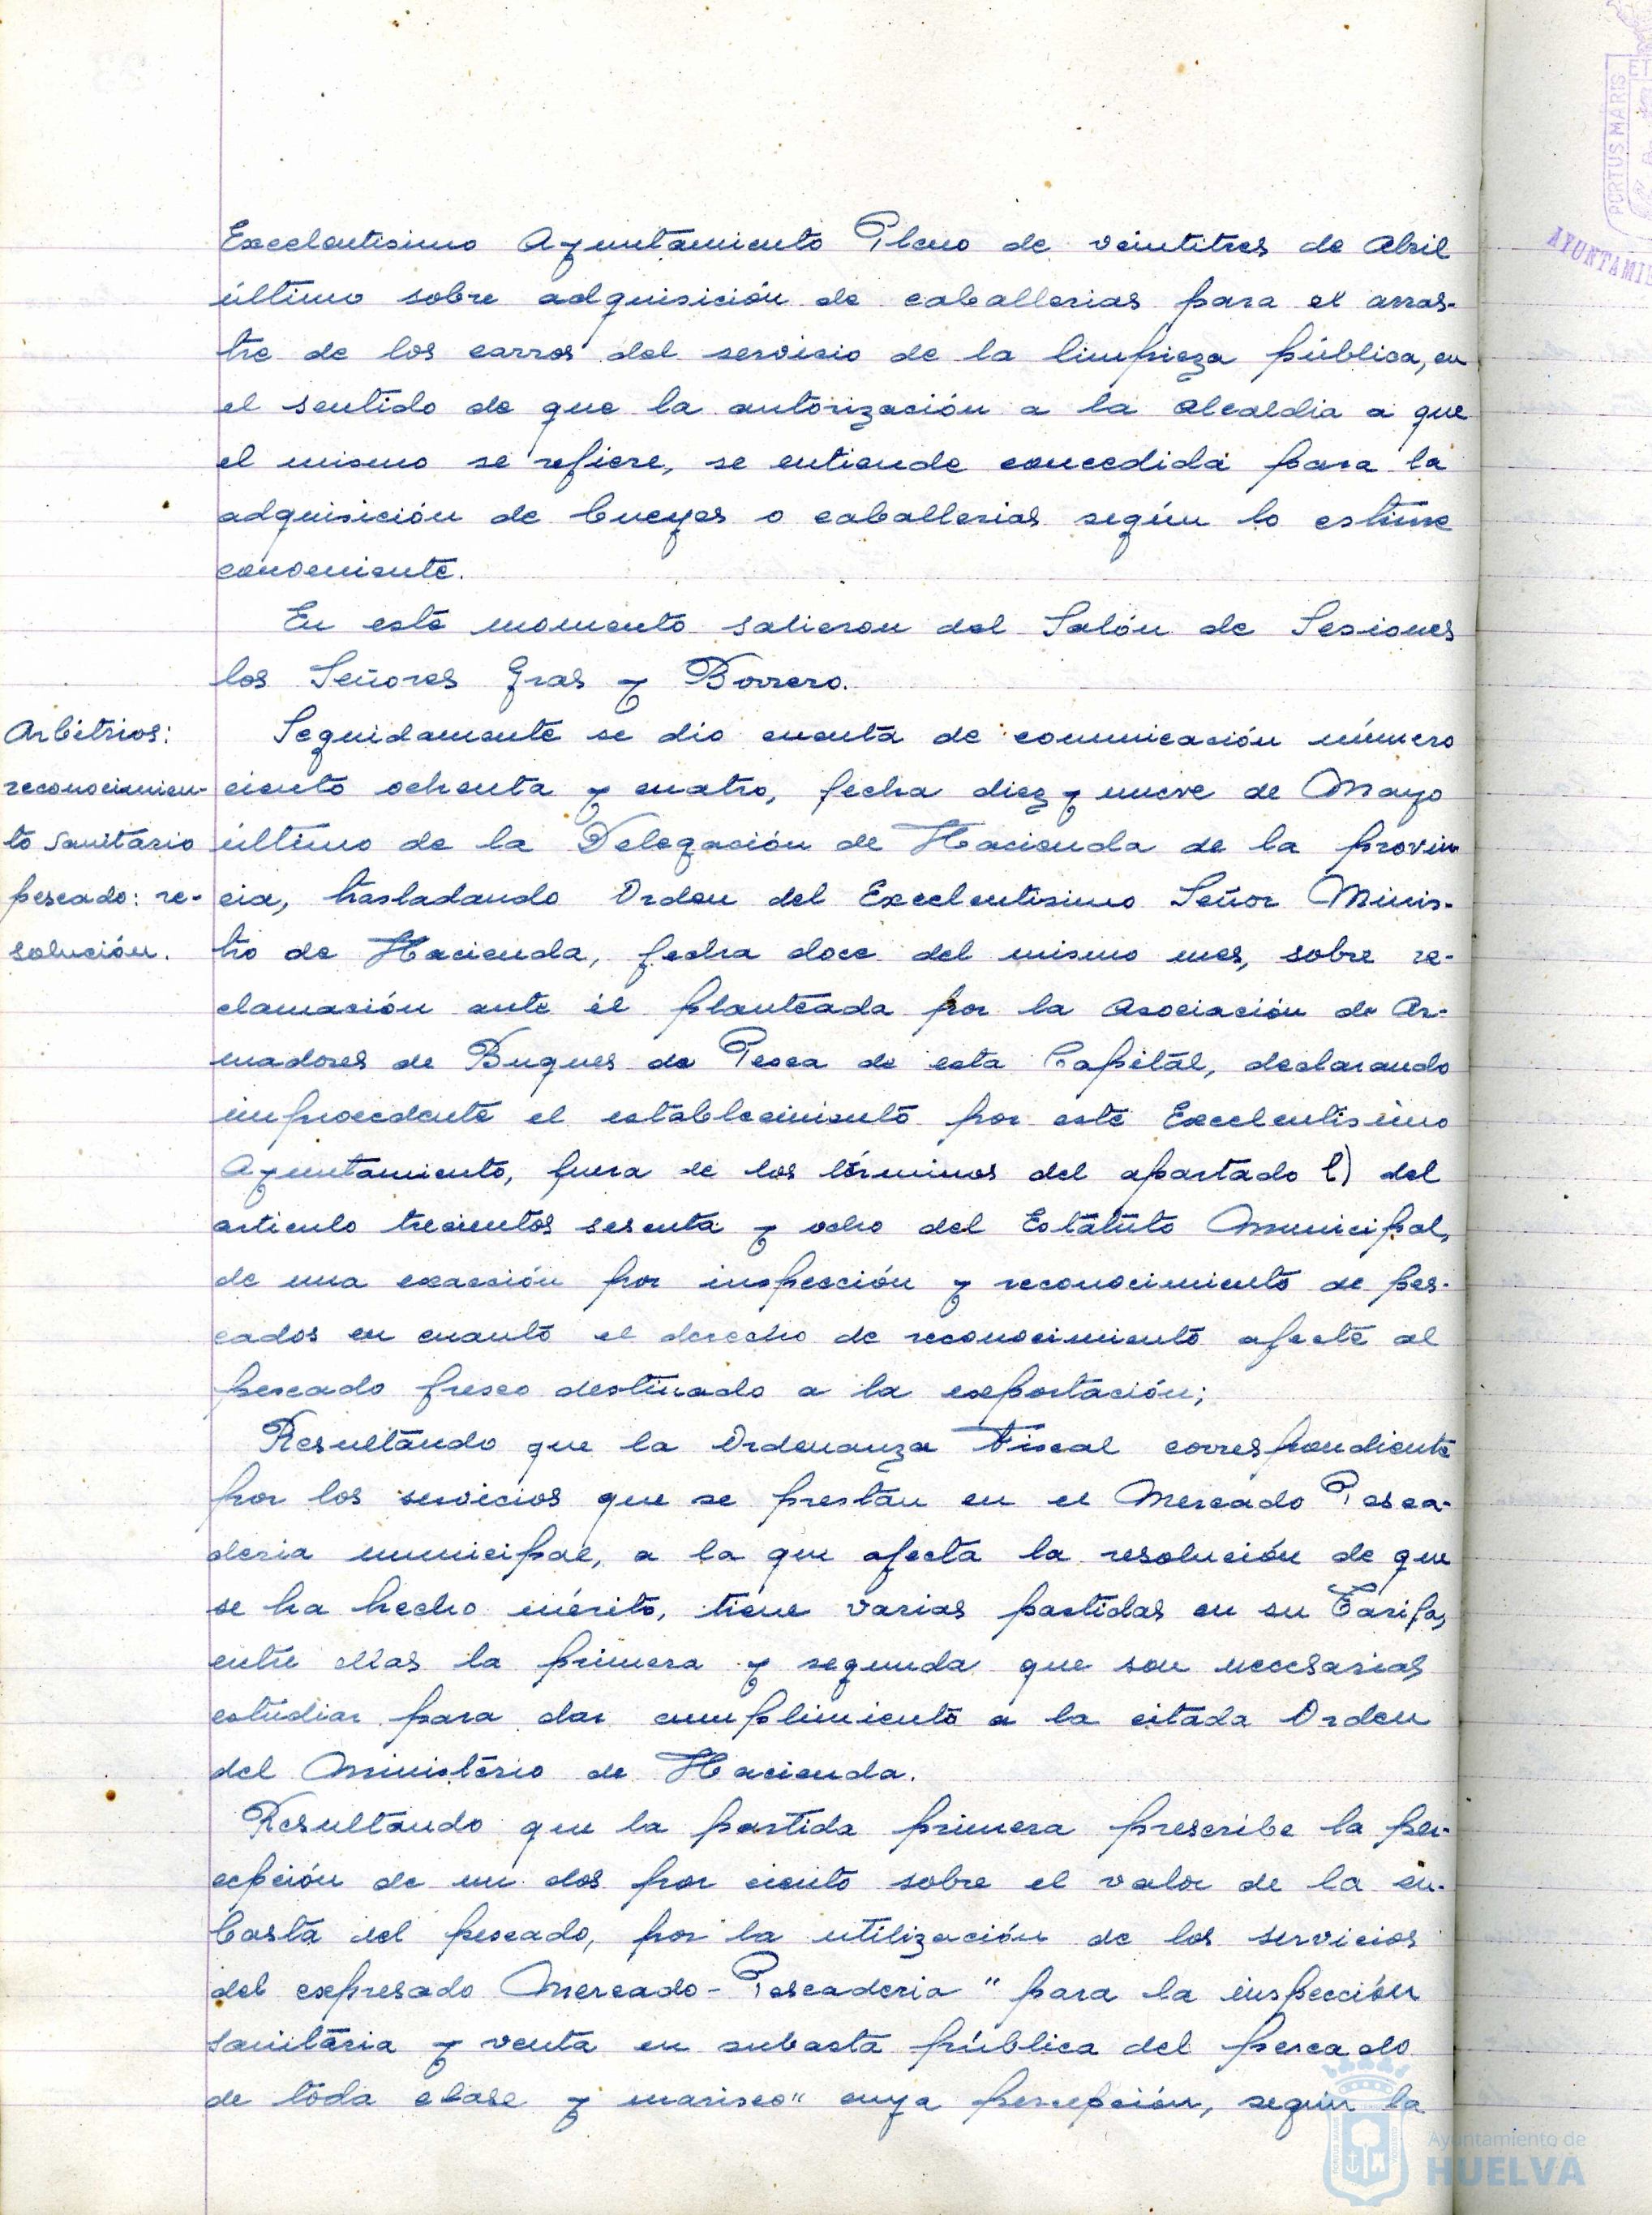 Excelentisimo Ayuntamiento Pleno de veintitres de Abril
último sobre adquisición de caballerias para el arras-
tre de los carros del servicio de la limpieza pública, en
el sentido de que la autorización a la Alcaldia a que
el mismo se refiere, se entiende concedida para la
adquisición de bueyes o caballerias según lo estime
conveniente.
En este momento salieron del Salón de Sesiones
los Señores Gras y Borrero.
Arbitrios:
reconocimien-
to sanitario
pescado: re-
solución.
Seguidamente se dio cuenta de comunicación número
ciento ochenta y cuatro, fecha diez y nueve de Mayo
último de la Delegación de Hacienda de la provin
cia, trasladando Orden del Excelentisimo Señor Minis-
tro de Hacienda, fecha doce del mismo mes, sobre re-
clamación ante él planteada por la Asociación de Ar-
madores de Buques de Pesca de esta Capital, declarando
improcedente el establecimiento por este Excelentisimo
Ayuntamiento, fuera de los términos del apartado l) del
articulo trecientos sesenta y ocho del Estatuto Municipal,
de una exacción por inspección y reconocimiento de pes-
cados en cuanto el derecho de reconocimiento afecte al
pescado fresco destinado a la exportación;
Resultando que la Ordenanza Fiscal correspondiente
por los servicios que se prestan en el Mercado Pesca-
deria municipal, a la que afecta la resolución de que
se ha hecho mérito, tiene varias partidas en su Tarifa,
entre ellas la primera y segunda que son necesarias
estudiar para dar cumplimiento a la citada Orden
del Ministerio de Hacienda.
Resultando que la partida primera prescribe la per-
cepción de un dos por ciento sobre el valor de la su-
basta del pescado, por la utilización de los servicios
del expresado Mercado-Pescaderia "para la inspección
sanitaria y venta en subasta pública del pescado
de toda clase y marisco" cuya percepción, según la
PORTUS MARIS
Ayuntamiento de
HUELVA